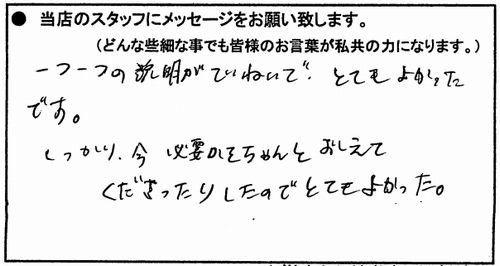 ● 当店のスタッフにメッセージをお願い致します。
（どんな些細な事でも皆様のお言葉が私共の力になります。）
一つ一つの説明がていねいで、とてもよかった
です。
しっかり、今 必要かをちゃんと おしえて
くださったりしたのでとてもよかった。